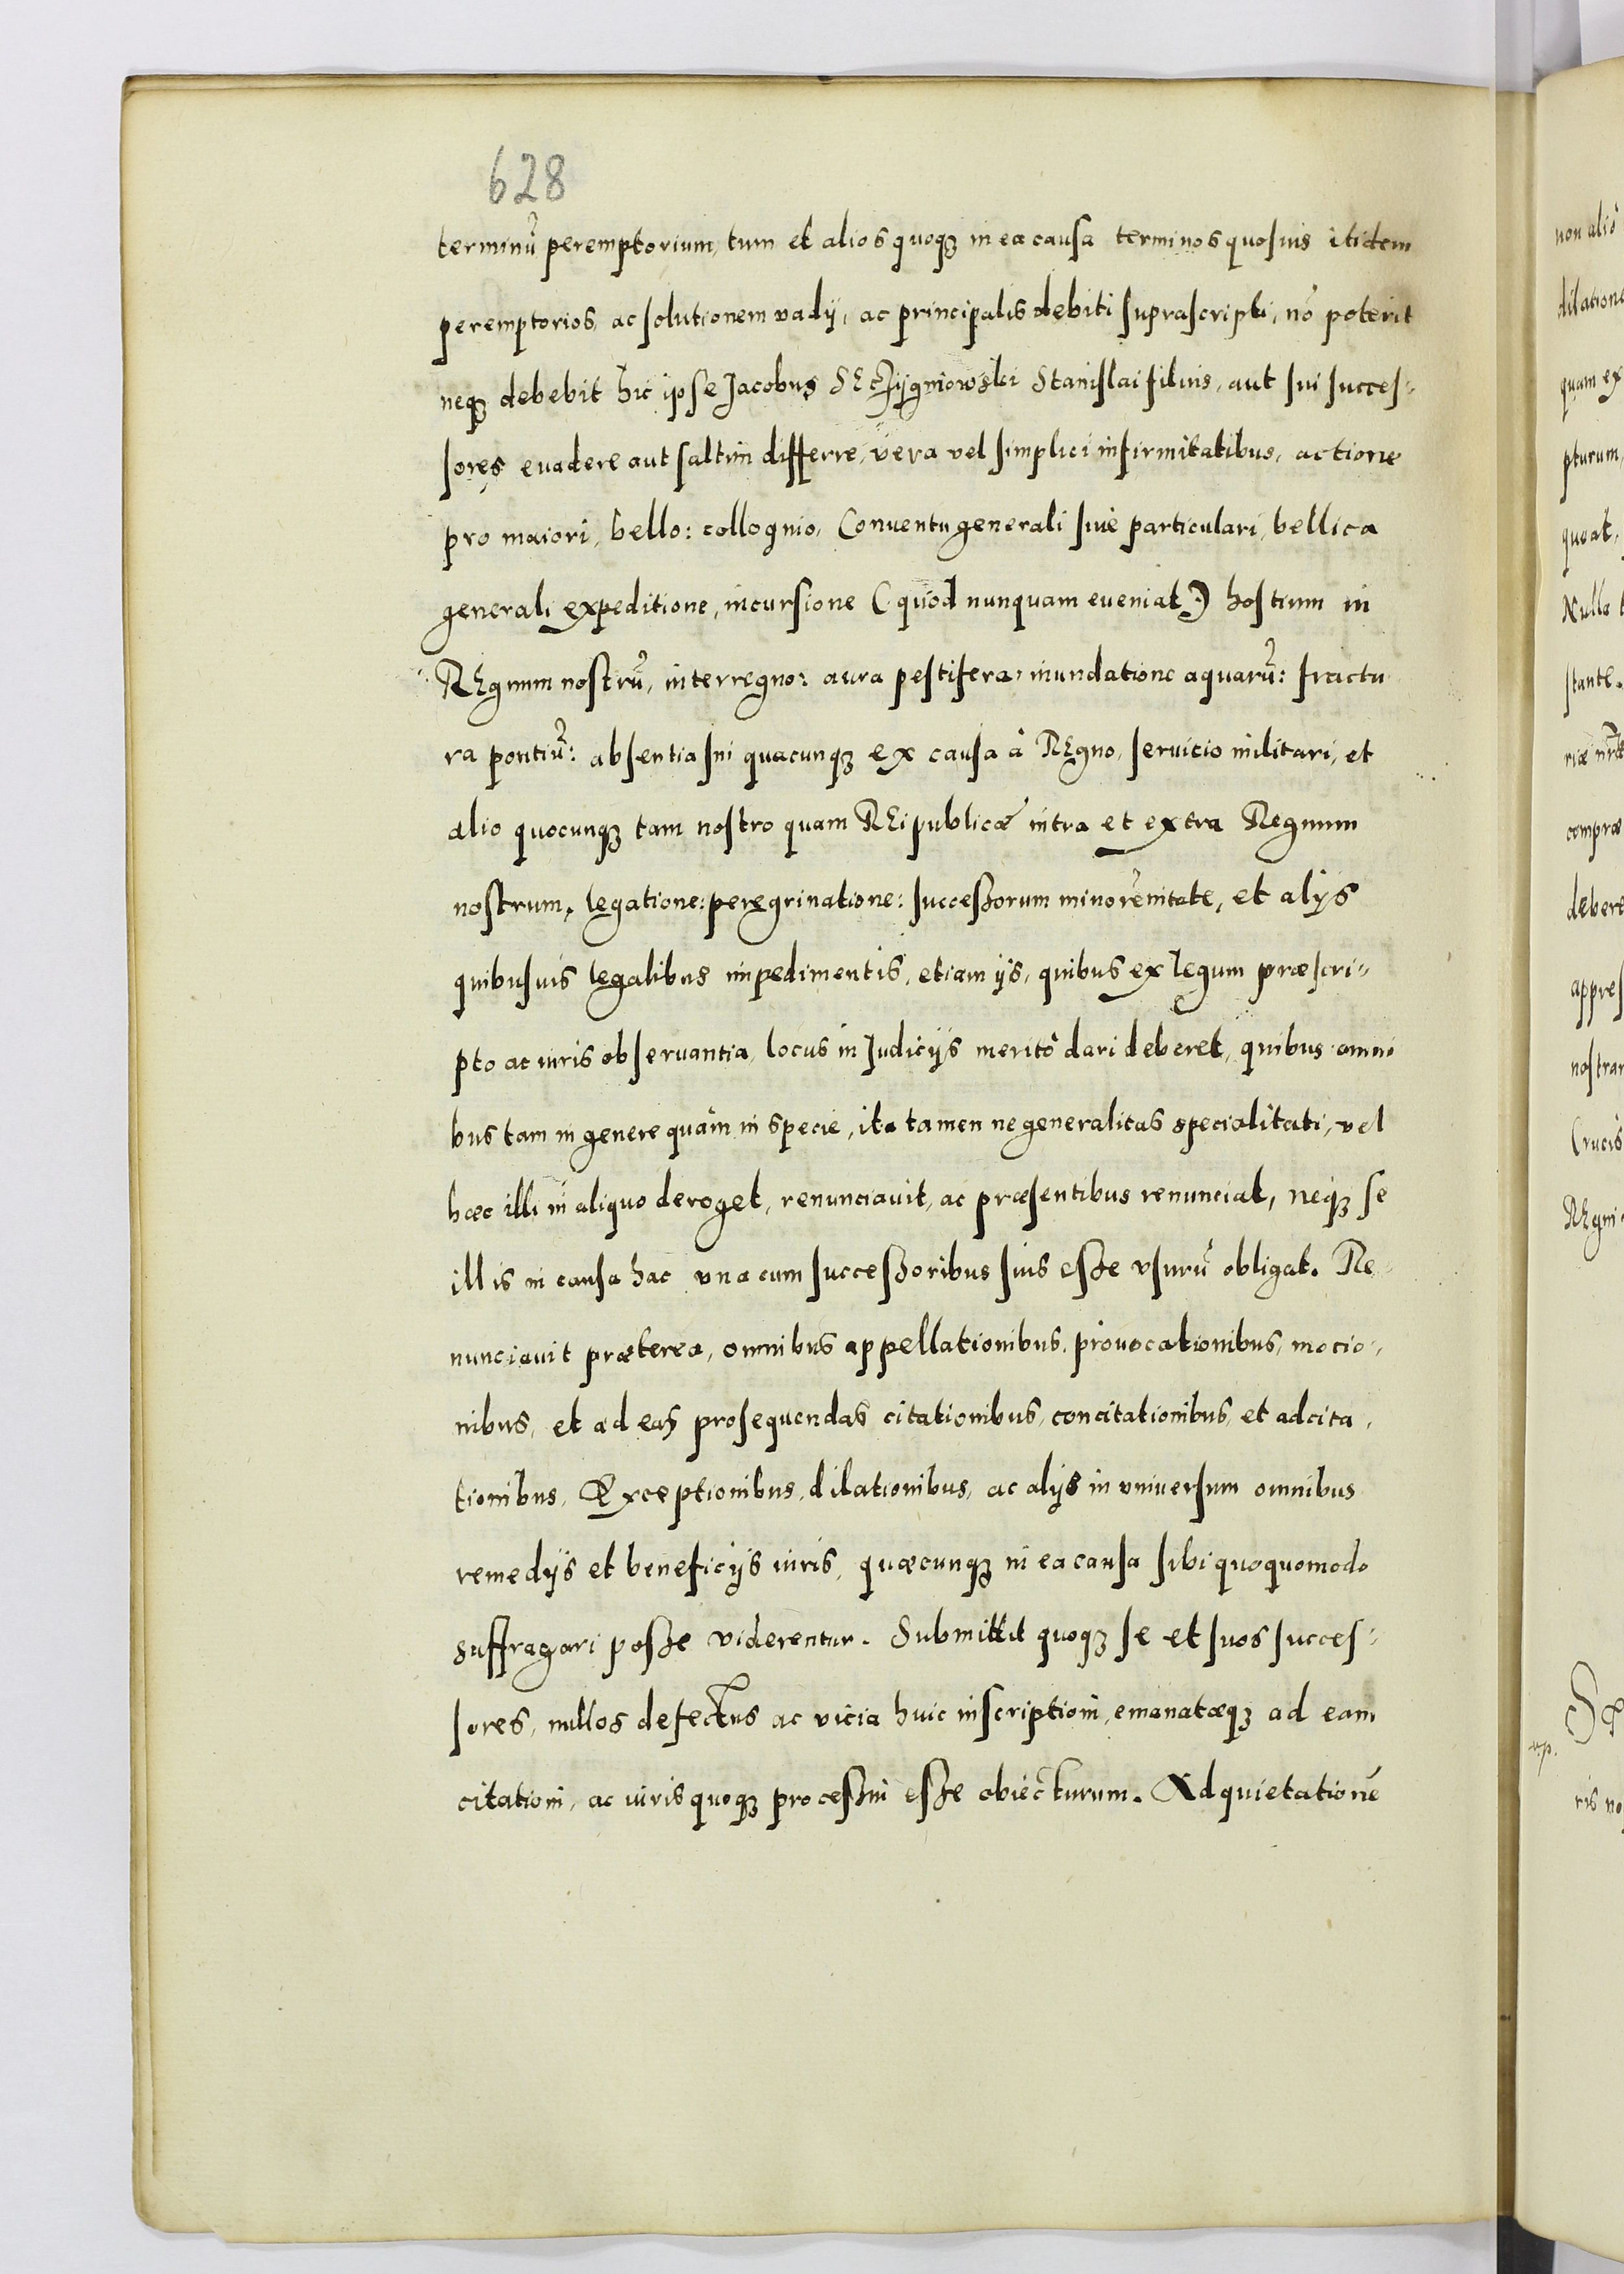 628
terminũ peremptorium, tum et alios quoqꝫ in ea causa terminos quosuis itidem
peremptorios, ac solutionem vadij, ac principalis debiti suprascripti, nõ poterit
neqꝫ debebit hic ipse Jacobus Stanislai filius, aut sui succes⸗
sores euadere aut saltim differre, vera vel simplici infirmitatibus, actione
pro maiori, bello: colloquio, Conuentu generali siue particulari, bellica
generali expeditione, incursione (quod nunquam eueniat) hostium in
REgnum nostrũ, interregno: aura pestifera, inundatione aquarũ: fractu
ra pontiũ: absentia sui quacunqꝫ ex causa à REgno, seruicio militari, et
alio quocunqꝫ tam nostro quam REipublicæ intra et extra Regnum
nostrum, legatione: peregrinatione: successorum minorennitate, et alijs
quibusuis legalibus impedimentis, etiam ijs, quibus ex legum præscri⸗
pto ac iuris obseruantia, locus in Judicijs meritò dari deberet, quibus omni
bus tam in genere quàm in specie, ita tamen ne generalitas specialitati, vel
hæc illi in aliquo deroget, renunciauit, ac præsentibus renunciat, neqꝫ se
illis in causa hac vna cum successoribus suis esse vsurũ obligat. Re⸗
nunciauit præterea, omnibus appellationibus, prouocationibus, mocio⸗
nibus, et ad eas prosequendas citationibus, concitationibus, et adcita⸗
tionibus, Exceptionibus, dilationibus, ac alijs in vniuersum omnibus
remedijs et beneficijs iuris, quæcunqꝫ in ea causa sibi quoquomodo
suffragari posse viderentur. Submittit quoqꝫ se et suos succes⸗
sores, nullos defectus ac vicia huic inscriptioni, emanatæqꝫ ad eam
citationi, ac iuris quoqꝫ processui esse obiecturum. Ad quietationẽ
non aliò
quam ex
pturum,
queat,
stante.
debere
Crucis
REgni